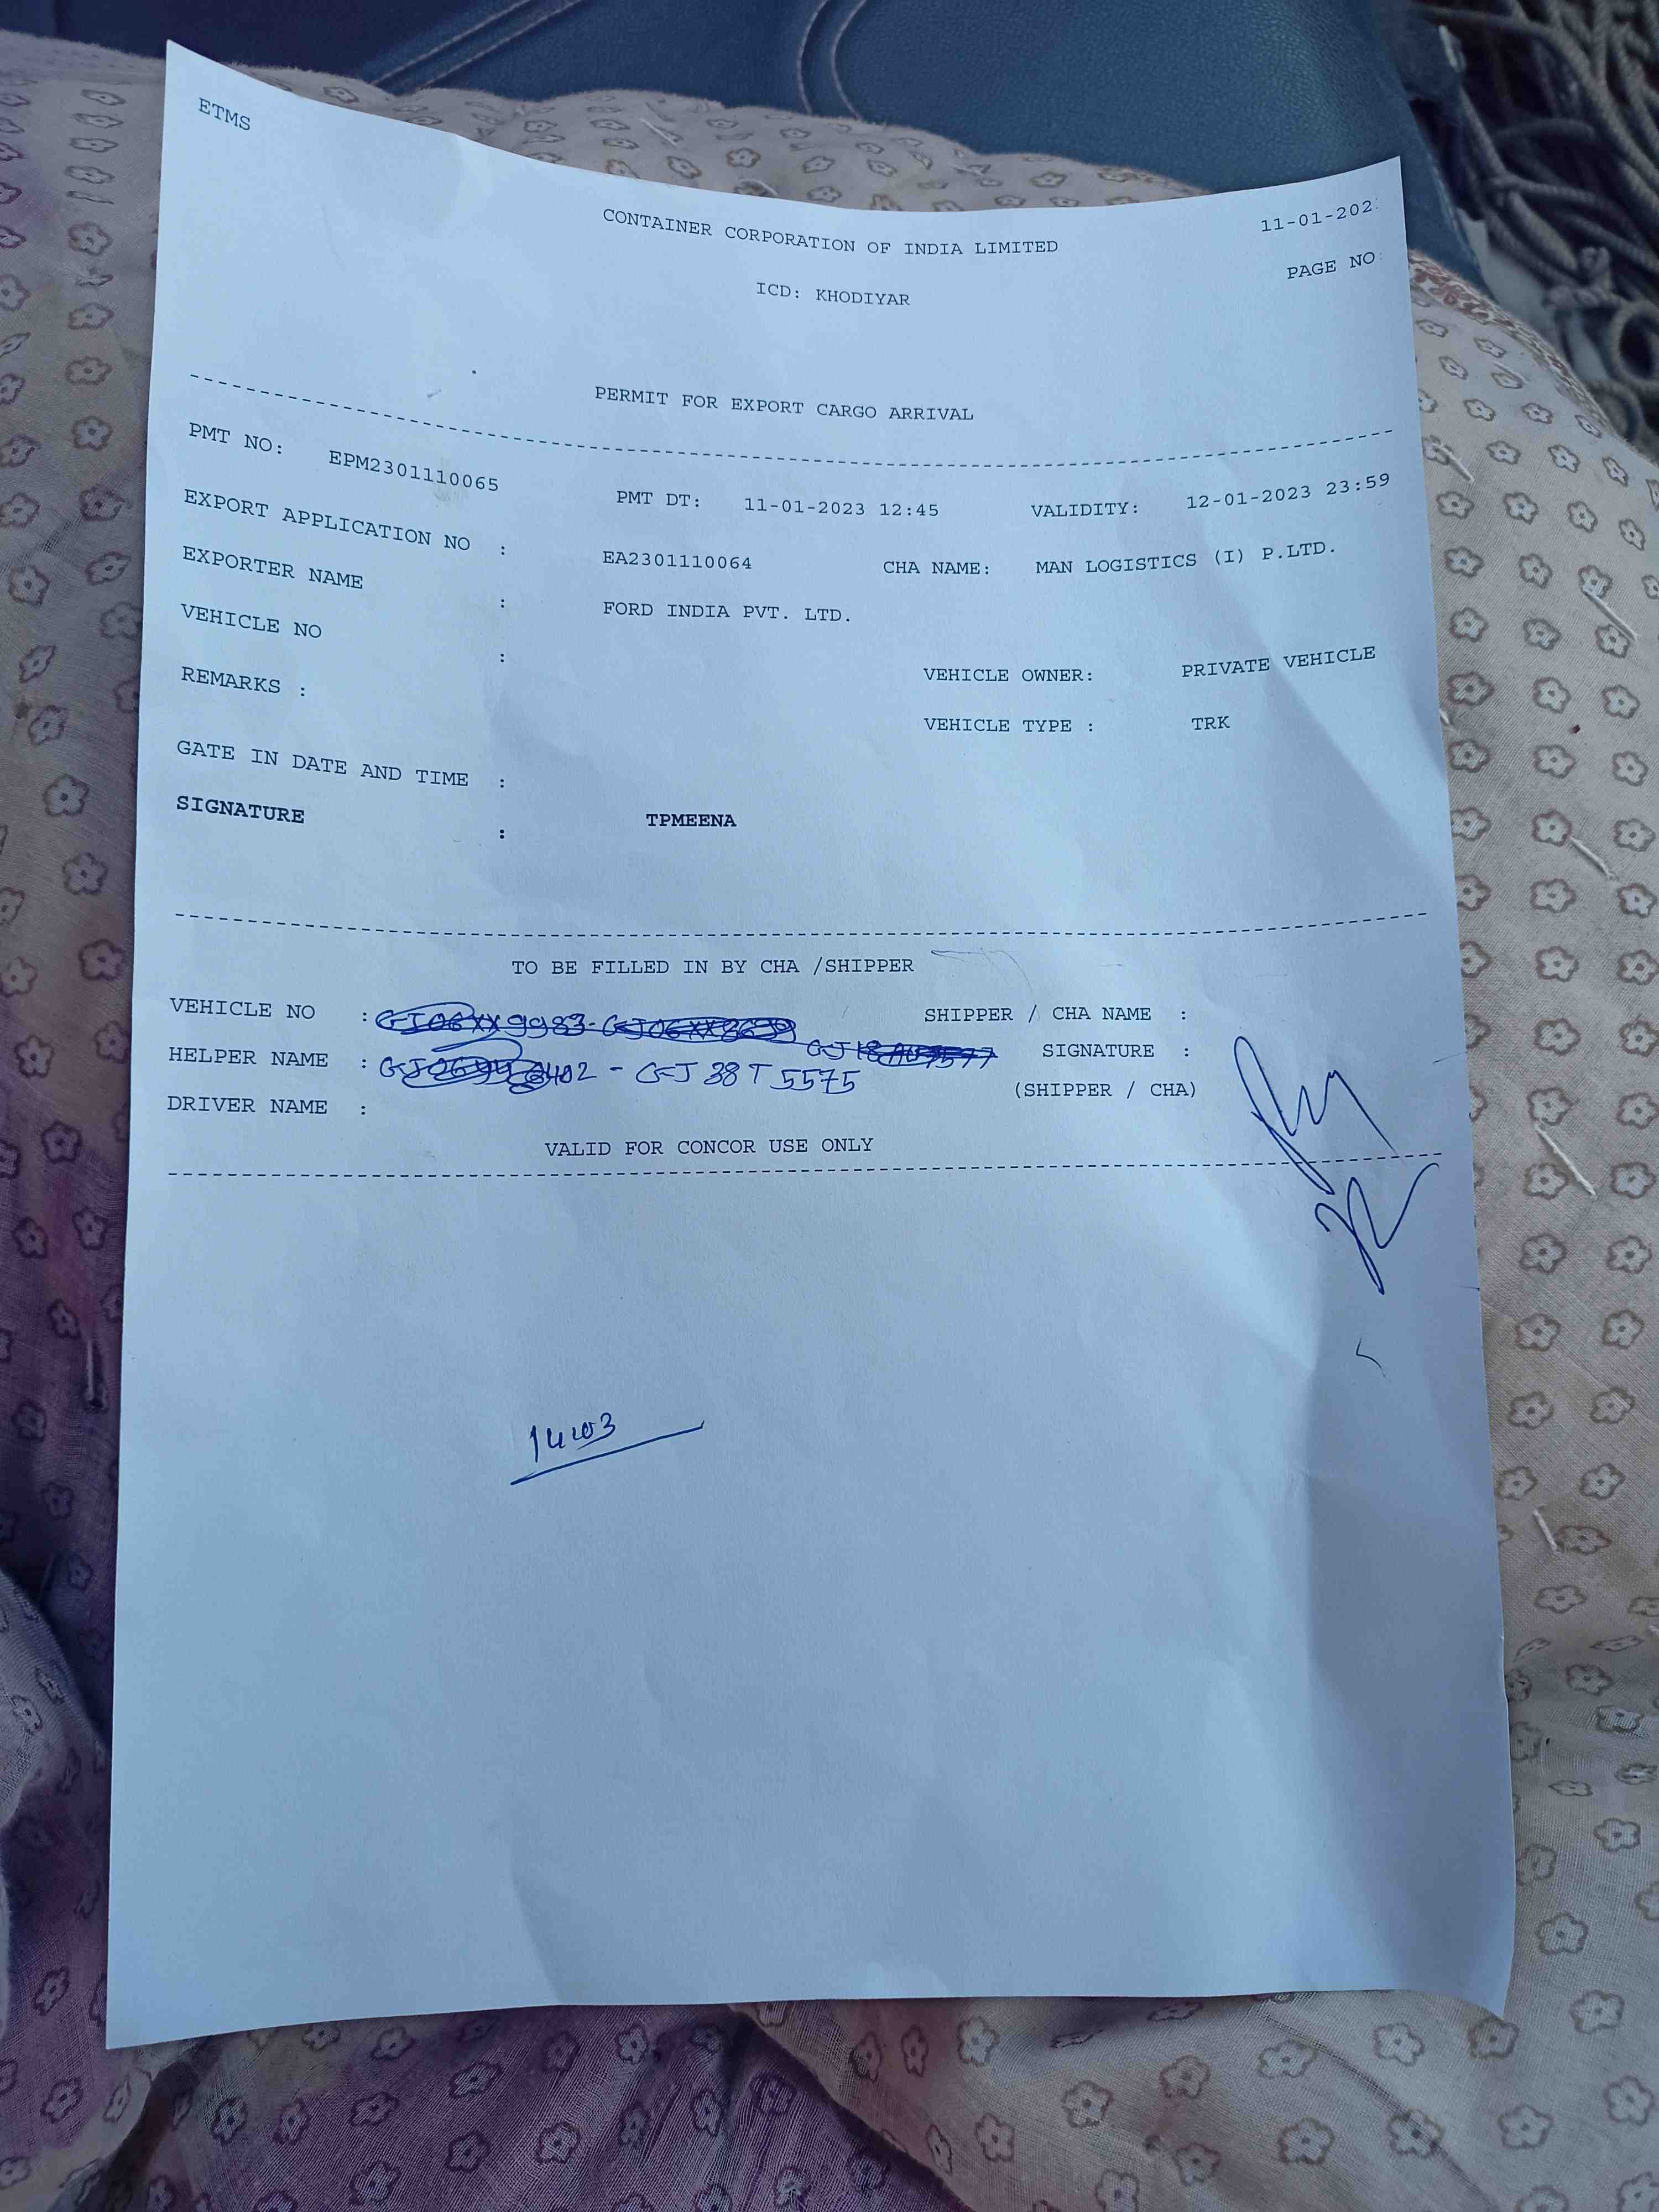 ETMS
CONTAINER CORPORATION OF INDIA LIMITED 11-01-202
ICD: KHODIYAR PAGE NO
PERMIT FOR EXPORT CARGO ARRIVAL
PMT NO: EPM2301110065 PMT DT: 11-01-2023 12:45 VALIDITY: 12-01-2023 23:59
EXPORT APPLICATION NO : EA2301110064 CHA NAME: MAN LOGISTICS (I) P.LTD.
EXPORTER NAME : FORD INDIA PVT. LTD.
VEHICLE NO : VEHICLE OWNER: PRIVATE VEHICLE
REMARKS : VEHICLE TYPE : TRK
GATE IN DATE AND TIME :
SIGNATURE : TPMEENA
TO BE FILLED IN BY CHA /SHIPPER
VEHICLE NO : SHIPPER / CHA NAME :
HELPER NAME : GJ 38 T 5575 SIGNATURE :
DRIVER NAME : (SHIPPER / CHA)
VALID FOR CONCOR USE ONLY